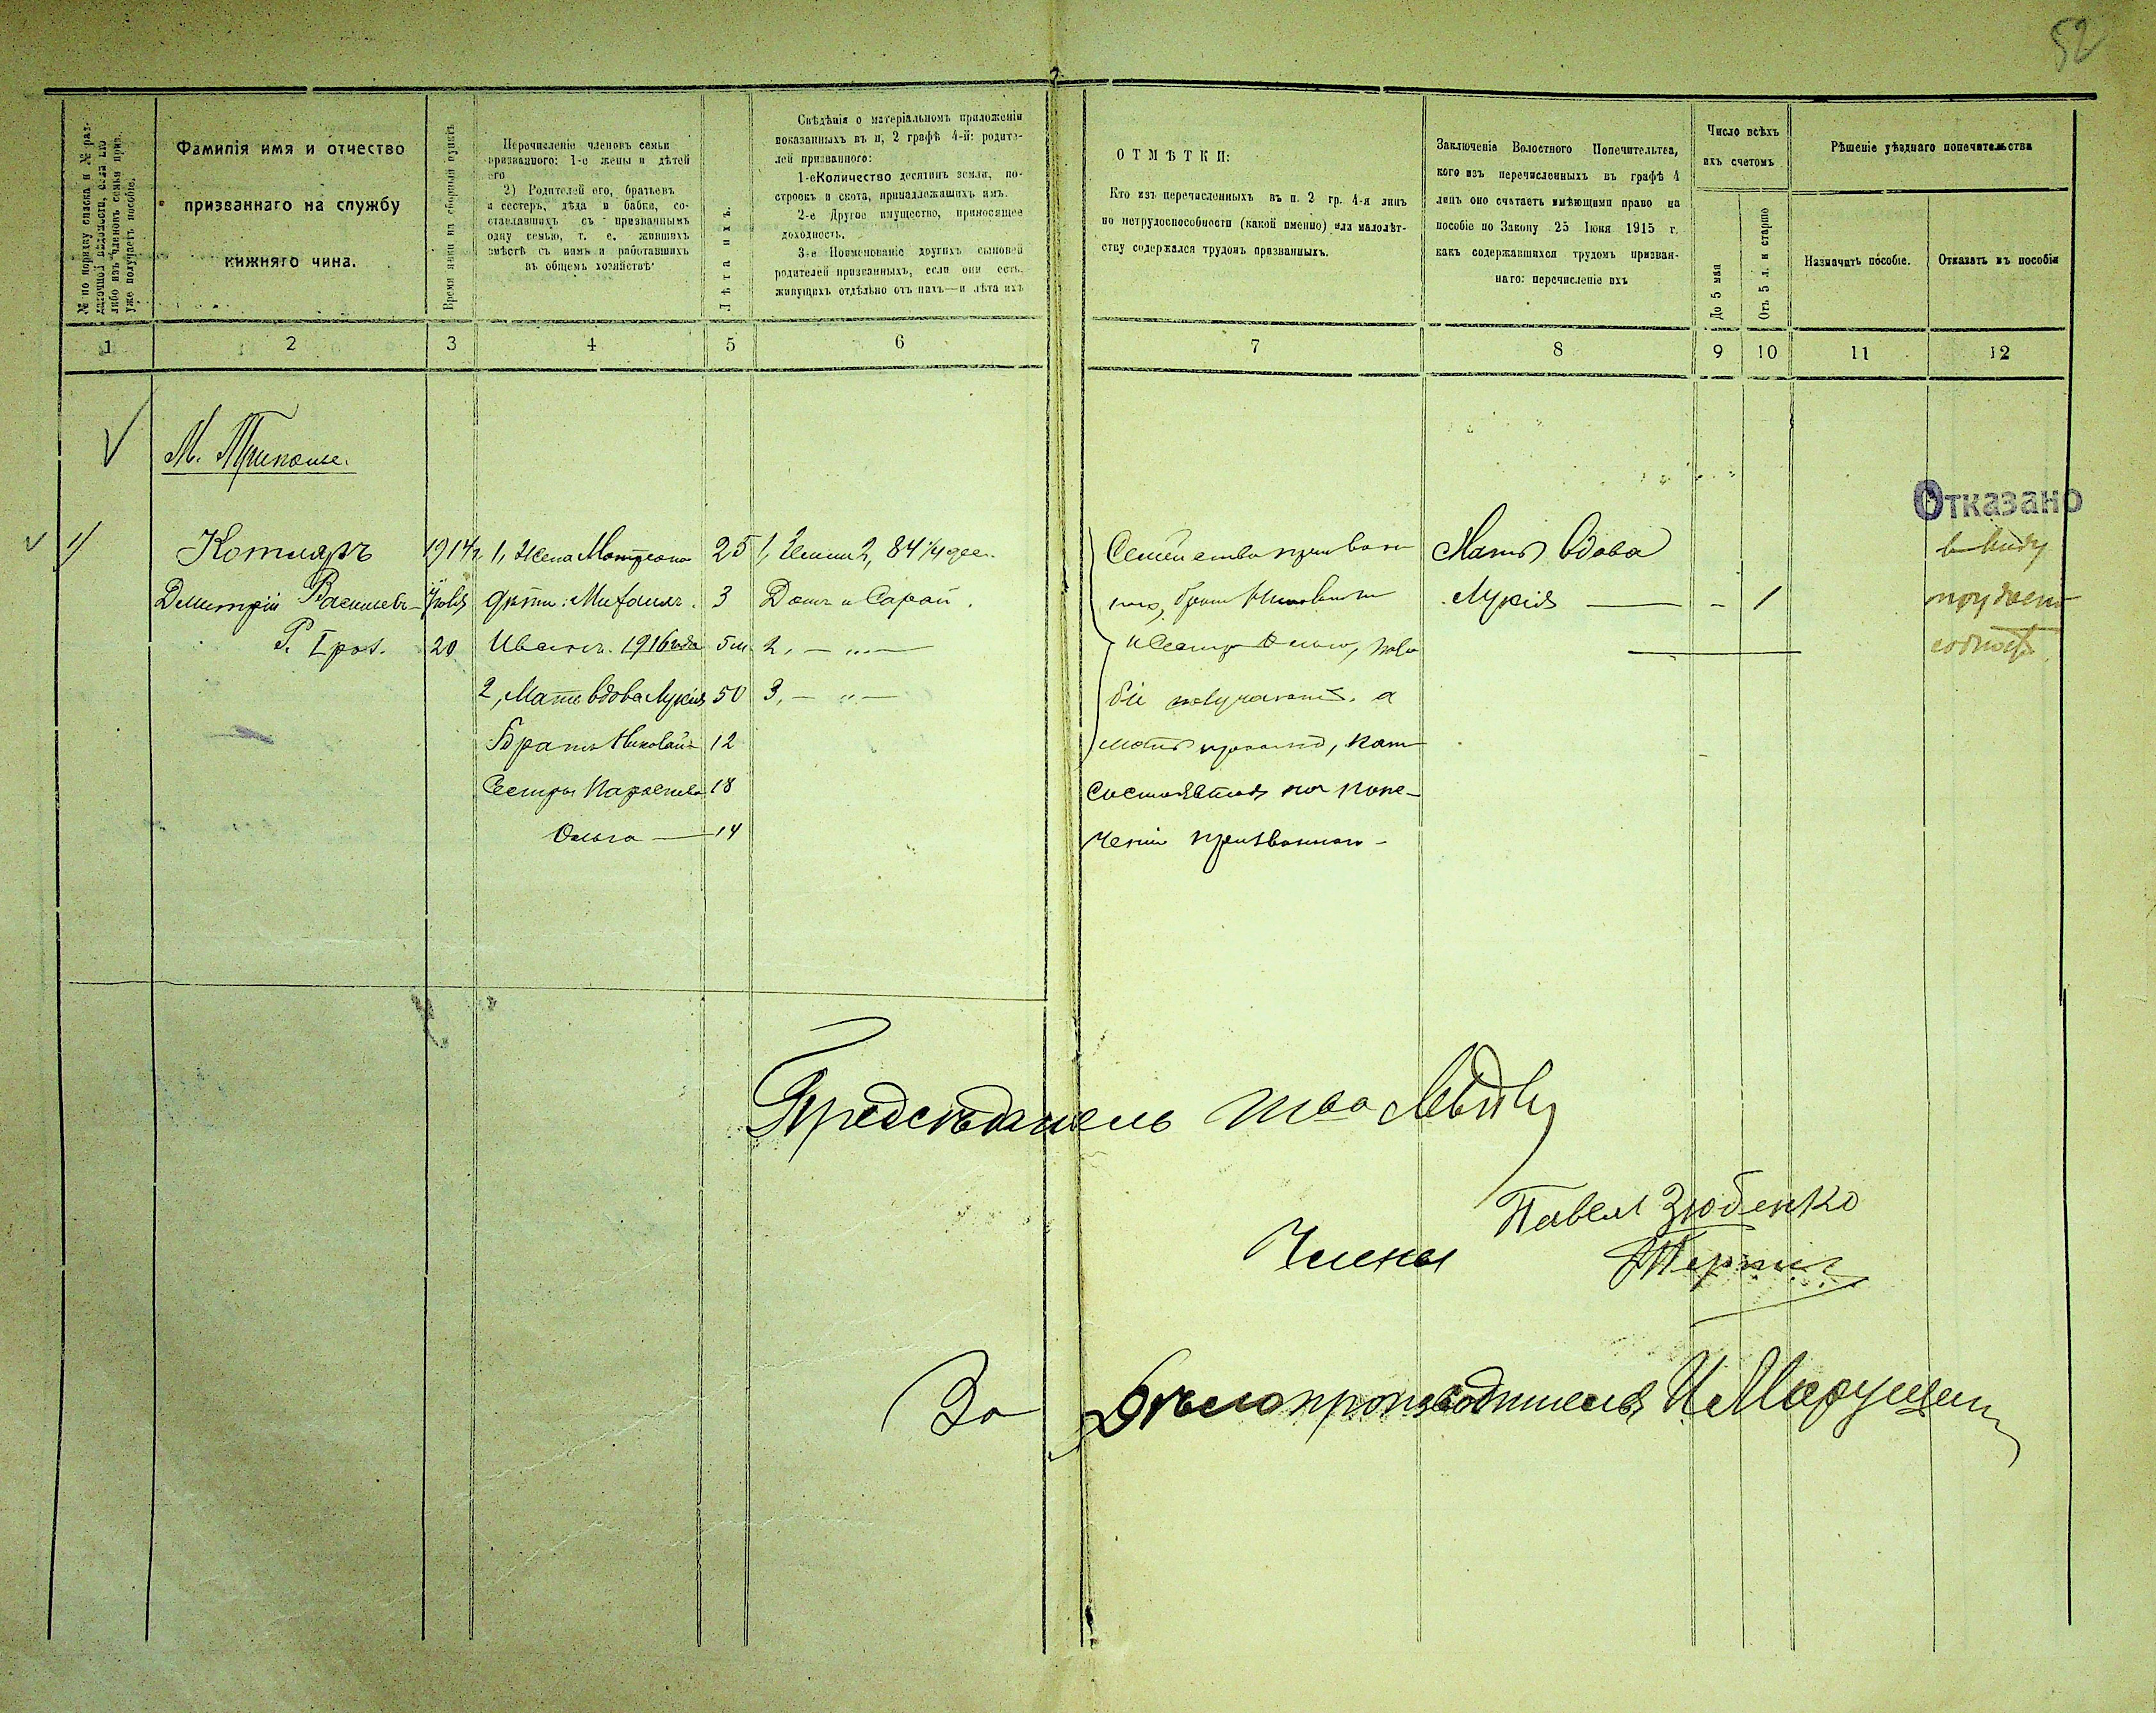 52
№ по порядку списка и № раз-
даточной вѣдомости, если кто
либо изъ членовъ семьи приз.
уже получаетъ пособіе.
Фамилія имя и отчество
призваннаго на службу
нижняго чина.
Время явки на сборный пунктъ
Перечисленіе членовъ семьи
призваннаго: 1-е жены и дѣтей
его
2) Родителей его, братьевъ
и сестеръ, дѣда и бабки, со-
ставлявшихъ съ призваннымъ
одну семью, т. е. жившихъ
вмѣстѣ съ нимъ и работавшихъ
въ общемъ хозяйствѣ
Лѣта ихъ.
Свѣдѣнія о матеріальномъ приложеніи
показанныхъ въ п, 2 графѣ 4-й: родите-
лей призваннаго:
1-е Количество десятинъ земли, по-
строекъ и скота, принадлежащихъ имъ.
2-е Другое имущество, приносящее
доходность.
3-е Поименованіе другихъ сыновей
родителей призванныхъ, если они есть.
живущихъ отдѣльно отъ нихъ—и лѣта ихъ
ОТМѢТКИ:
Кто изъ перечисленныхъ въ п. 2 гр. 4-я лицъ
по нетрудоспособности (какой именно) или малолѣт-
ству содержался трудомъ призванныхъ.
Заключеніе Волостного Попечительтва,
кого изъ перечисленныхъ въ графѣ 4
лицъ оно считаетъ имѣющими право на
пособіе по Закону 25 Іюня 1915 г.
какъ содержавшихся трудомъ призван-
наго: перечисленіе ихъ
Число всѣхъ
ихъ счетомъ
До 5 лѣт
Отъ 5 л. и старше
Рѣшеніе уѣзднаго попечительства
Назначить пособіе.
Отказать въ пособіи
1 2 3 4 5 6 7 8 9 10 11 12
М. Триполье.
Отказано
1/ Котляръ 1914 г. 1, Жена Матрона 25 1, Земли 2, 84 1/4 дес. Семейство призван Мать вдова въ виду
Дмитрій Васильев- дѣти: Михаилъ. 3 Домъ и Сарай. наго, братъ Лукія — - 1 трудосп
Р. I раз. 20 Иванъ. 1916 года 5 м. 2, — „ — и сестра Ольга, посо
2, Мать вдова Лукія 50 3, — „ — біе получаютъ. а
Братъ Николай 12 мать
Сестры Параскева 18 состоявшая на попе-
Ольга — 14 ченіи призваннаго -
Предсѣдатель
Павелъ Зюбенко
Члены
За Дѣлопроизводителя